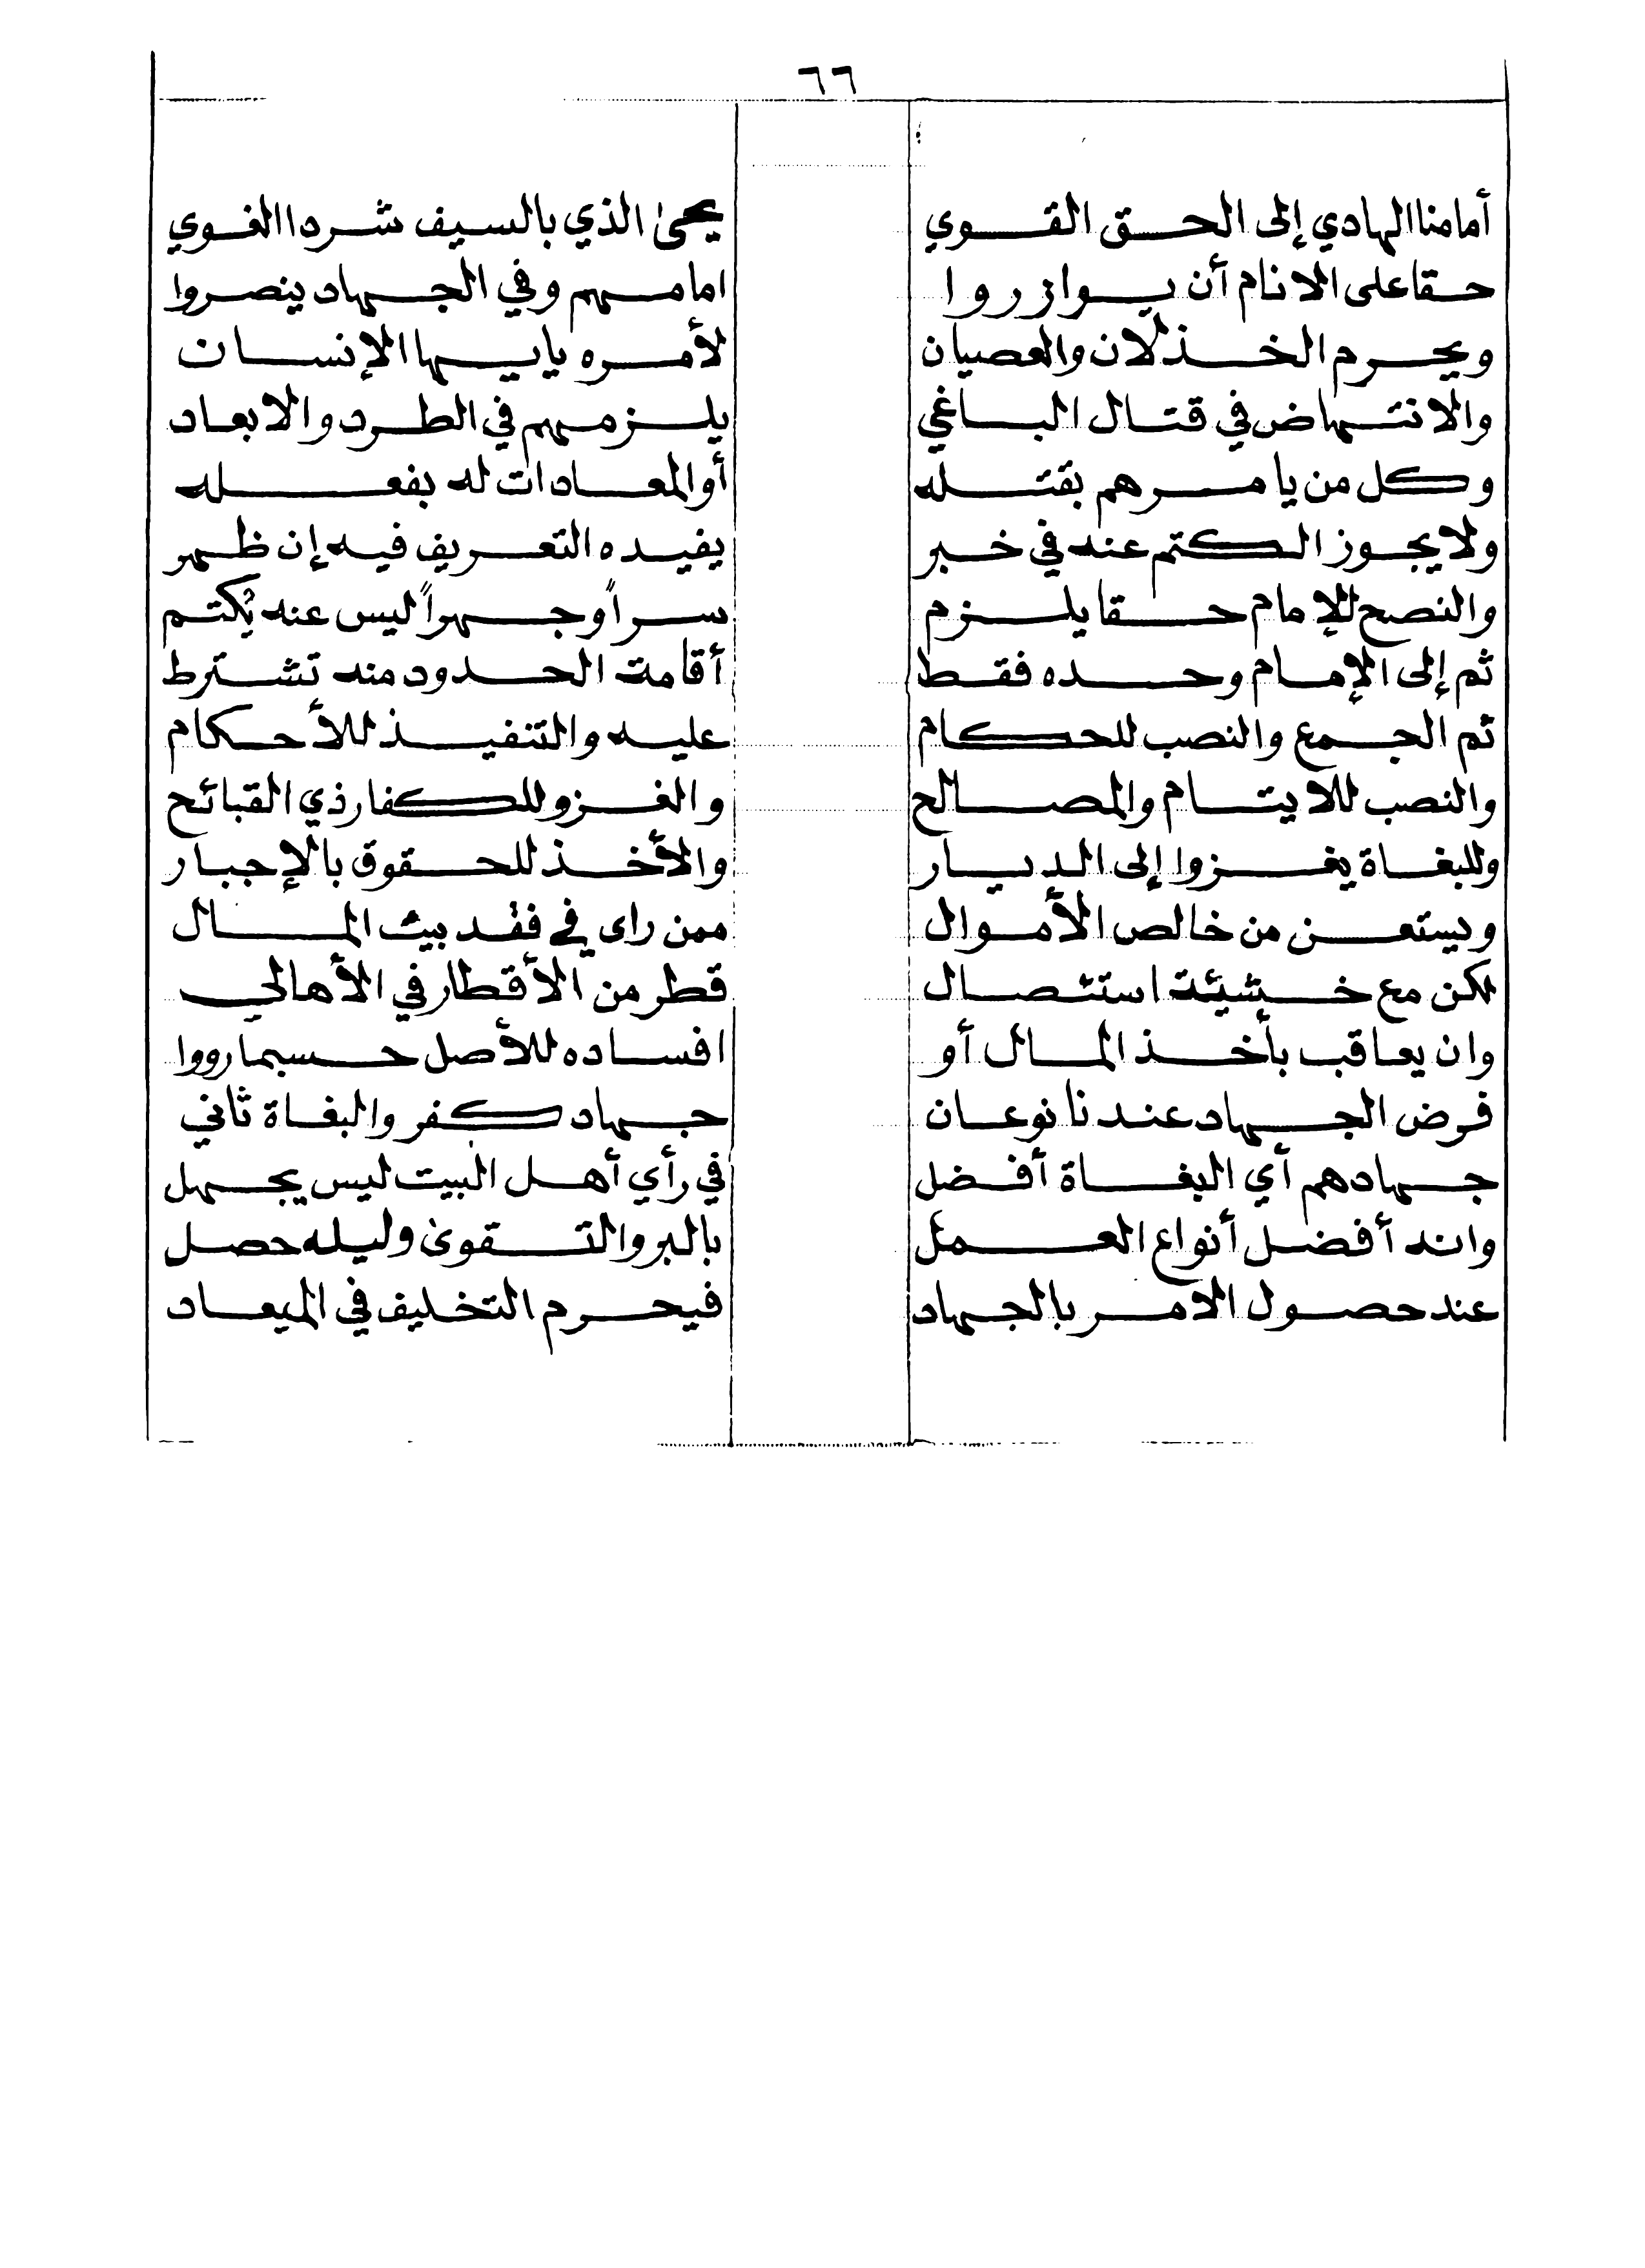 ٦٦
أمامنا الهادي إلى الحق القوي يحيى الذي بالسيف شرد االغوي
حقا على الانام أن يوازروا امامهم وفي الجهاد ينصروا
ويحرم الخذلان والعصيان لأمره يايها الإنسان
والانتهاض في قتال الباغي يلزمهم في الطرد والابعاد
وكل من يامرهم بقتله أو المعادات له بفعله
ولا يجوز الكتم عنه في خبر يفيده التعريف فيه إن ظهر
والنصح للإمام حقا يلزم سراً وجهراً ليس عنه يُكتم
ثم إلى الإمام وحده فقط أقامة الحدود منه تشترط
ثم الجمع والنصب للحكام عليه والتنفيذ للأحكام
والنصب للايتام والمصالح والغزو للكفار ذي القبائح
وللبغاة يغزوا إلى الديار والأخذ للحقوق بالإجبار
ويستعن من خالص الأموال ممن راى في فقد بيت المال
لكن مع خشيئة استئصال قطر من الأقطار في الأهالي
وان يعاقب بأخذ المال أو افساده للأصل حسبما رووا
فرض الجهاد عندنا نوعان جهاد كفر والبغاة ثاني
جهادهم أي البغاة أفضل في رأي أهل البيت ليس يجهل
وانه أفضل أنواع العمل بالبر والتقوى وليله حصل
عند حصول الامر بالجهاد فيحرم التخليف في الميعاد